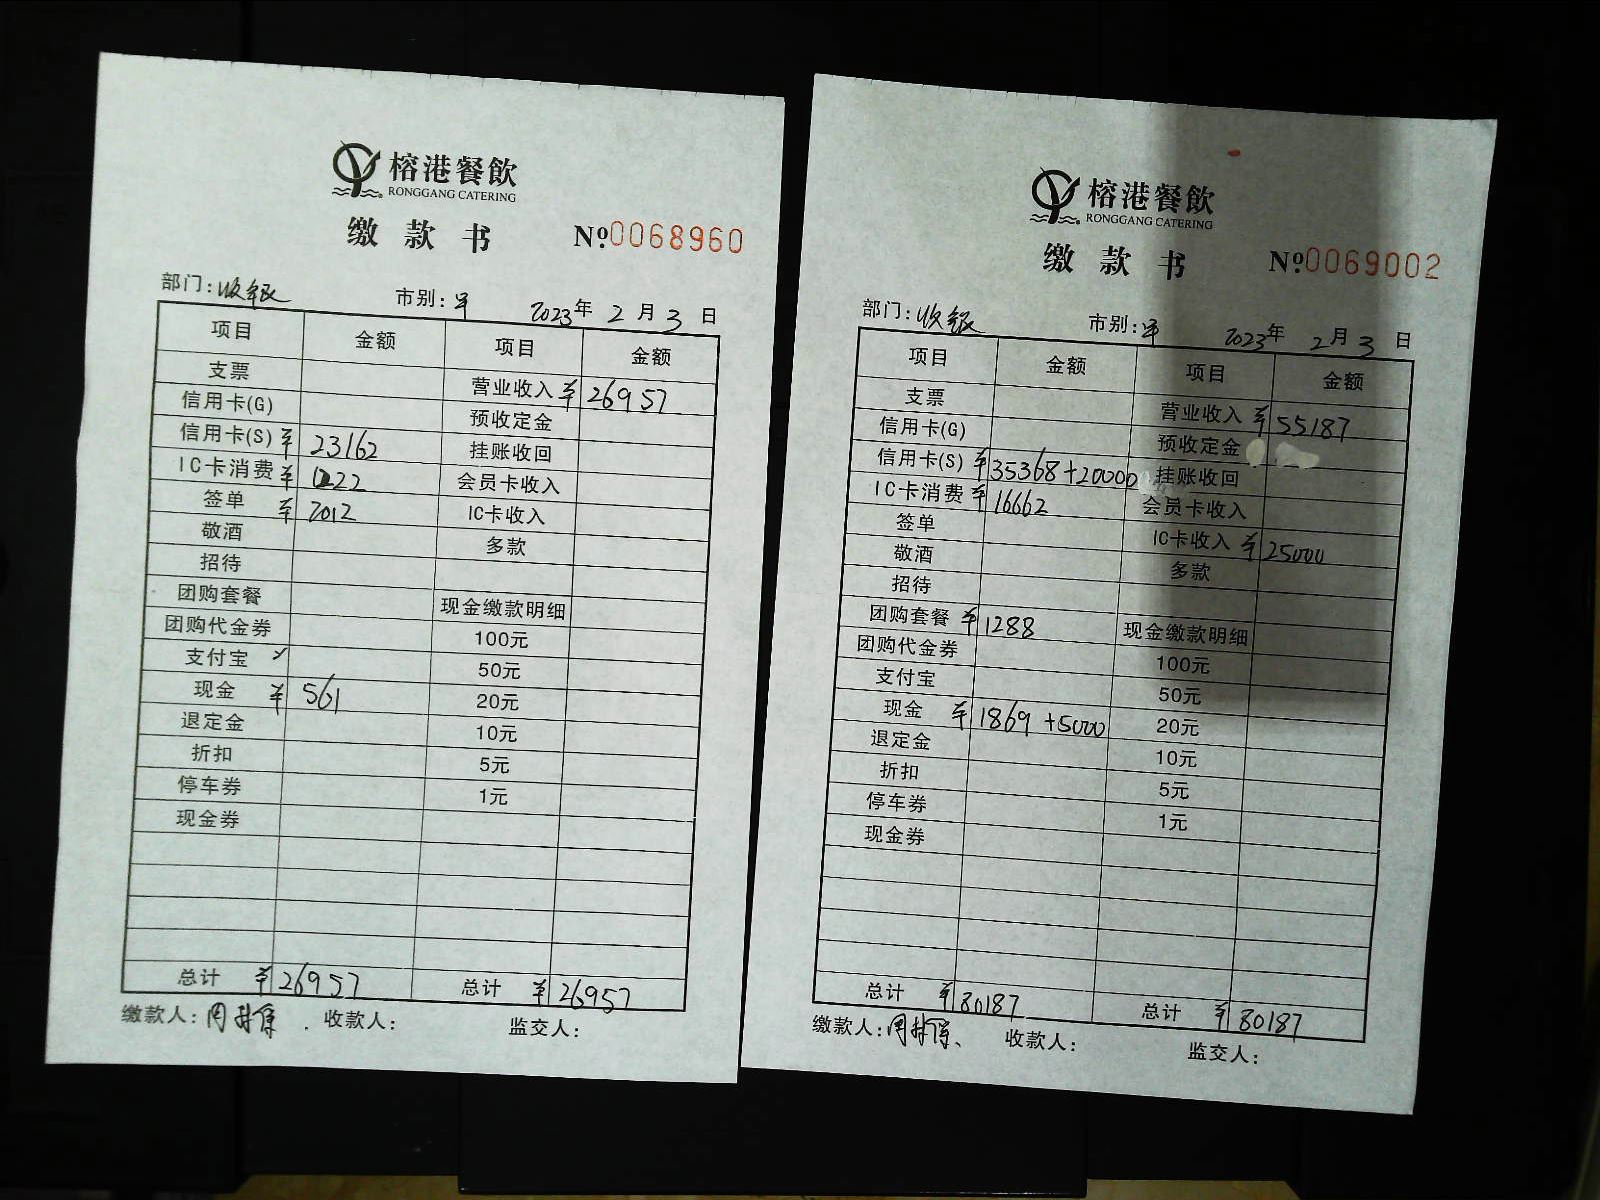 榕港餐飲
RONGGANG CATERING
缴款书 №0068960
部门:收银 市别:早 2023年2月3日
项目 金额 项目 金额
支票 营业收入 ¥26957
信用卡(G) 预收定金
信用卡(S) ¥23162 挂账收回
IC卡消费 ¥1222 会员卡收入
签单 ¥2012 IC卡收入
敬酒 多款
招待
团购套餐 现金缴款明细
团购代金券 100元
支付宝 50元
现金 ¥561 20元
退定金 10元
折扣 5元
停车券 1元
现金券
总计 ¥26957 总计 ¥26957
缴款人: 收款人: 监交人:
榕港餐飲
RONGGANG CATERING
缴款书 №0069002
部门:收银 市别:早 2023年2月3日
项目 金额 项目 金额
支票 营业收入 ¥55187
信用卡(G) 预收定金
信用卡(S) ¥35368+20000 挂账收回
IC卡消费 ¥16662 会员卡收入
签单 IC卡收入 ¥25000
敬酒 多款
招待
团购套餐 ¥1288 现金缴款明细
团购代金券 100元
支付宝 50元
现金 ¥1869+5000 20元
退定金 10元
折扣 5元
停车券 1元
现金券
总计 ¥80187 总计 ¥80187
缴款人: 收款人: 监交人: